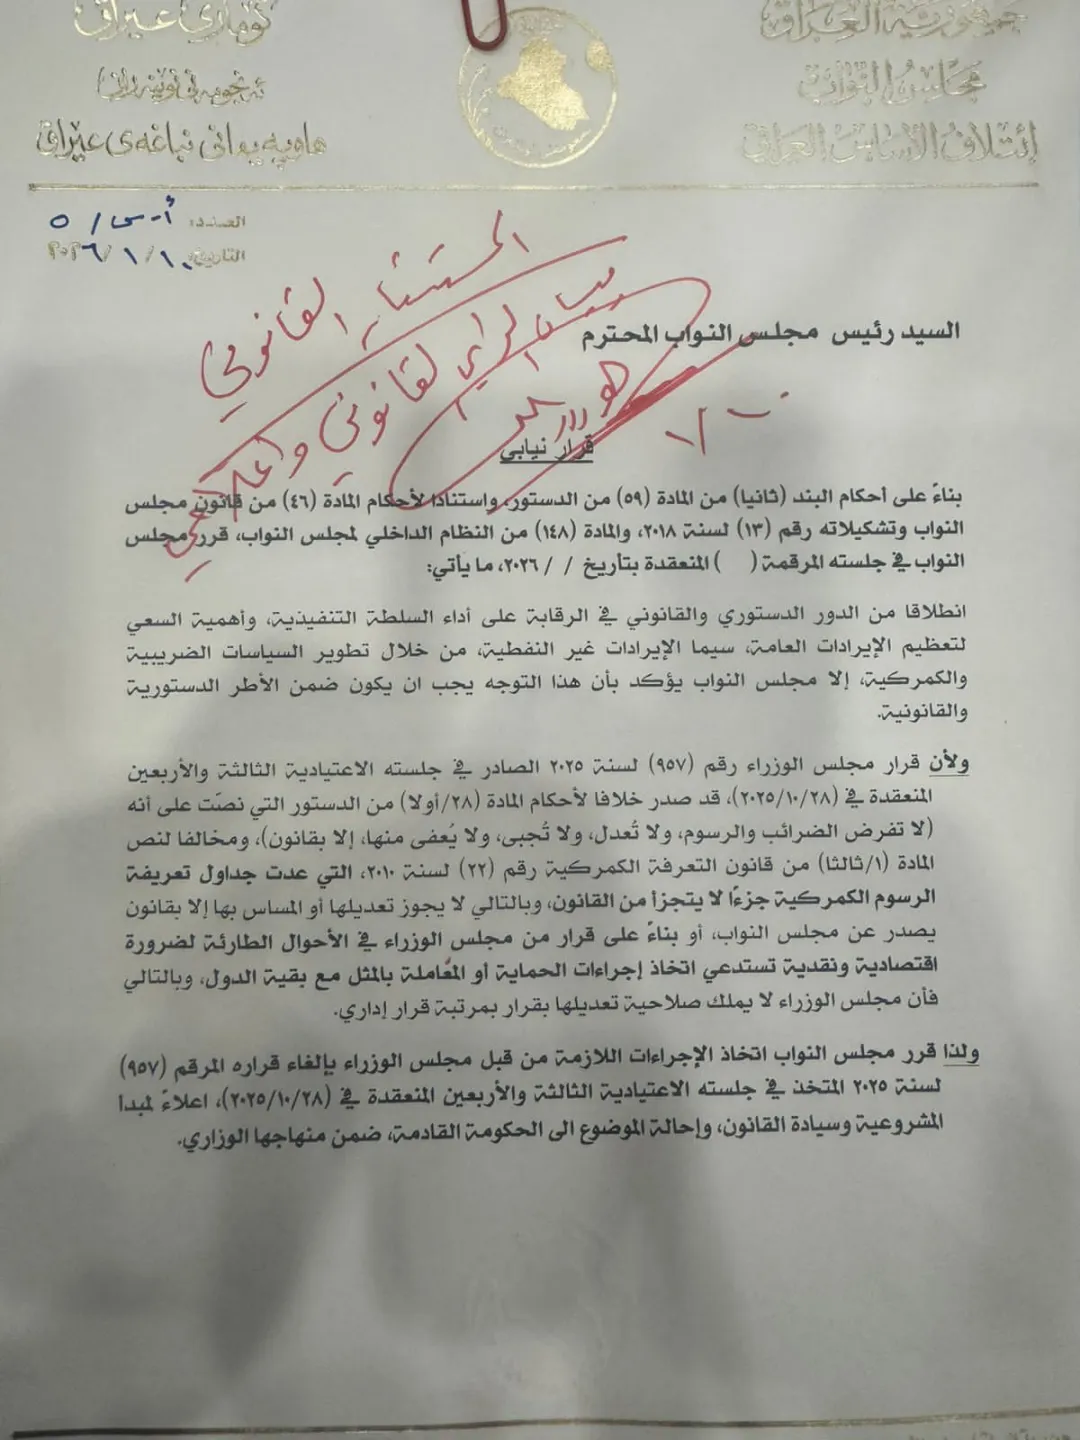 جمهورية العراق
مجلس النواب
إئتلاف الأساس العراقي
كۆماری عیراق
ئه نجومه نی نوێنه ران
هاوپه یمانی نباغه ی عێراق
العدد: أ.س / ٥
التاريخ: ١٠ / ١ / ٢٠٢٦
المستشار القانوني
لبيان الرأي القانوني وإعلامي
السيد رئيس مجلس النواب المحترم
قرار نيابي
بناءً على أحكام البند (ثانيا) من المادة (٥٩) من الدستور، واستنادا لأحكام المادة (٤٦) من قانون مجلس
النواب وتشكيلاته رقم (١٣) لسنة ٢٠١٨، والمادة (١٤٨) من النظام الداخلي لمجلس النواب، قرر مجلس
النواب في جلسته المرقمة ( ) المنعقدة بتأريخ / / ٢٠٢٦، ما يأتي:
انطلاقا من الدور الدستوري والقانوني في الرقابة على أداء السلطة التنفيذية، وأهمية السعي
لتعظيم الإيرادات العامة، سيما الإيرادات غير النفطية، من خلال تطوير السياسات الضريبية
والكمركية، إلا مجلس النواب يؤكد بأن هذا التوجه يجب ان يكون ضمن الأطر الدستورية
والقانونية.
ولأن قرار مجلس الوزراء رقم (٩٥٧) لسنة ٢٠٢٥ الصادر في جلسته الاعتيادية الثالثة والأربعين
المنعقدة في (٢٠٢٥/١٠/٢٨)، قد صدر خلافا لأحكام المادة (٢٨/أولا) من الدستور التي نصّت على أنه
(لا تفرض الضرائب والرسوم، ولا تُعدل، ولا تُجبى، ولا يُعفى منها، إلا بقانون)، ومخالفا لنص
المادة (١/ثالثا) من قانون التعرفة الكمركية رقم (٢٢) لسنة ٢٠١٠، التي عدت جداول تعريفة
الرسوم الكمركية جزءًا لا يتجزأ من القانون، وبالتالي لا يجوز تعديلها أو المساس بها إلا بقانون
يصدر عن مجلس النواب، أو بناءً على قرار من مجلس الوزراء في الأحوال الطارئة لضرورة
اقتصادية ونقدية تستدعي اتخاذ إجراءات الحماية أو المُعاملة بالمثل مع بقية الدول، وبالتالي
فأن مجلس الوزراء لا يملك صلاحية تعديلها بقرار بمرتبة قرار إداري.
ولذا قرر مجلس النواب اتخاذ الإجراءات اللازمة من قبل مجلس الوزراء بإلغاء قراره المرقم (٩٥٧)
لسنة ٢٠٢٥ المتخذ في جلسته الاعتيادية الثالثة والأربعين المنعقدة في (٢٠٢٥/١٠/٢٨)، اعلاءً لمبدا
المشروعية وسيادة القانون، وإحالة الموضوع الى الحكومة القادمة، ضمن منهاجها الوزاري.